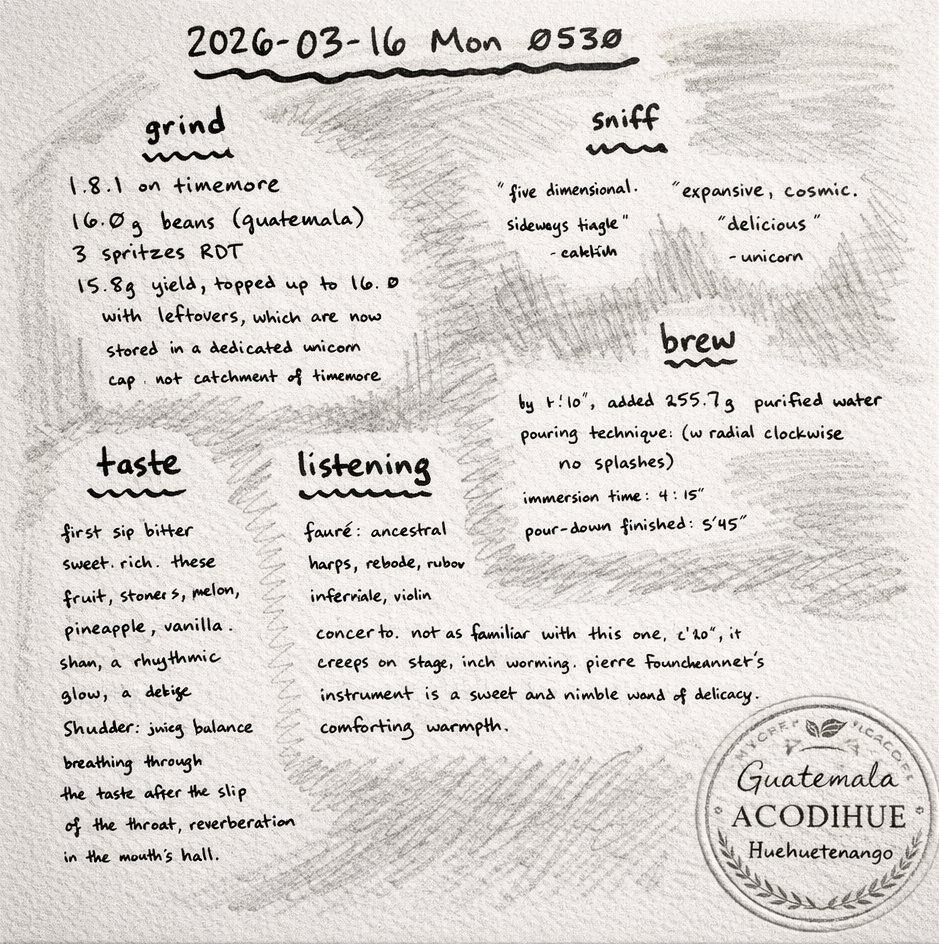 2026-03-16 Mon 0530
grind
1.8.1 on timemore
16.0g beans (guatemala)
3 spritzes RDT
15.8g yield, topped up to 16.0
with leftovers, which are now
stored in a dedicated unicorn
cap. not catchment of timemore
sniff
"five dimensional.
sideways
"expansive, cosmic.
"delicious"
- unicorn
brew
by added 255.7g purified water
pouring technique: (w radial clockwise
no splashes)
immersion time: 4:15"
pour-down finished: 5'45"
taste
first sip bitter
sweet. rich. these
fruit, melon,
pineapple, vanilla.
shan, a rhythmic
glow, a
Shudder: balance
breathing through
the taste after the slip
of the throat, reverberation
in the mouth's hall.
listening
fauré: ancestral
harps, rebode,
violin
concerto. not as familiar with this one, it
creeps on stage, inch worming. pierre
instrument is a sweet and nimble wand of delicacy.
comforting warmpth.
Guatemala
ACODIHUE
Huehuetenango